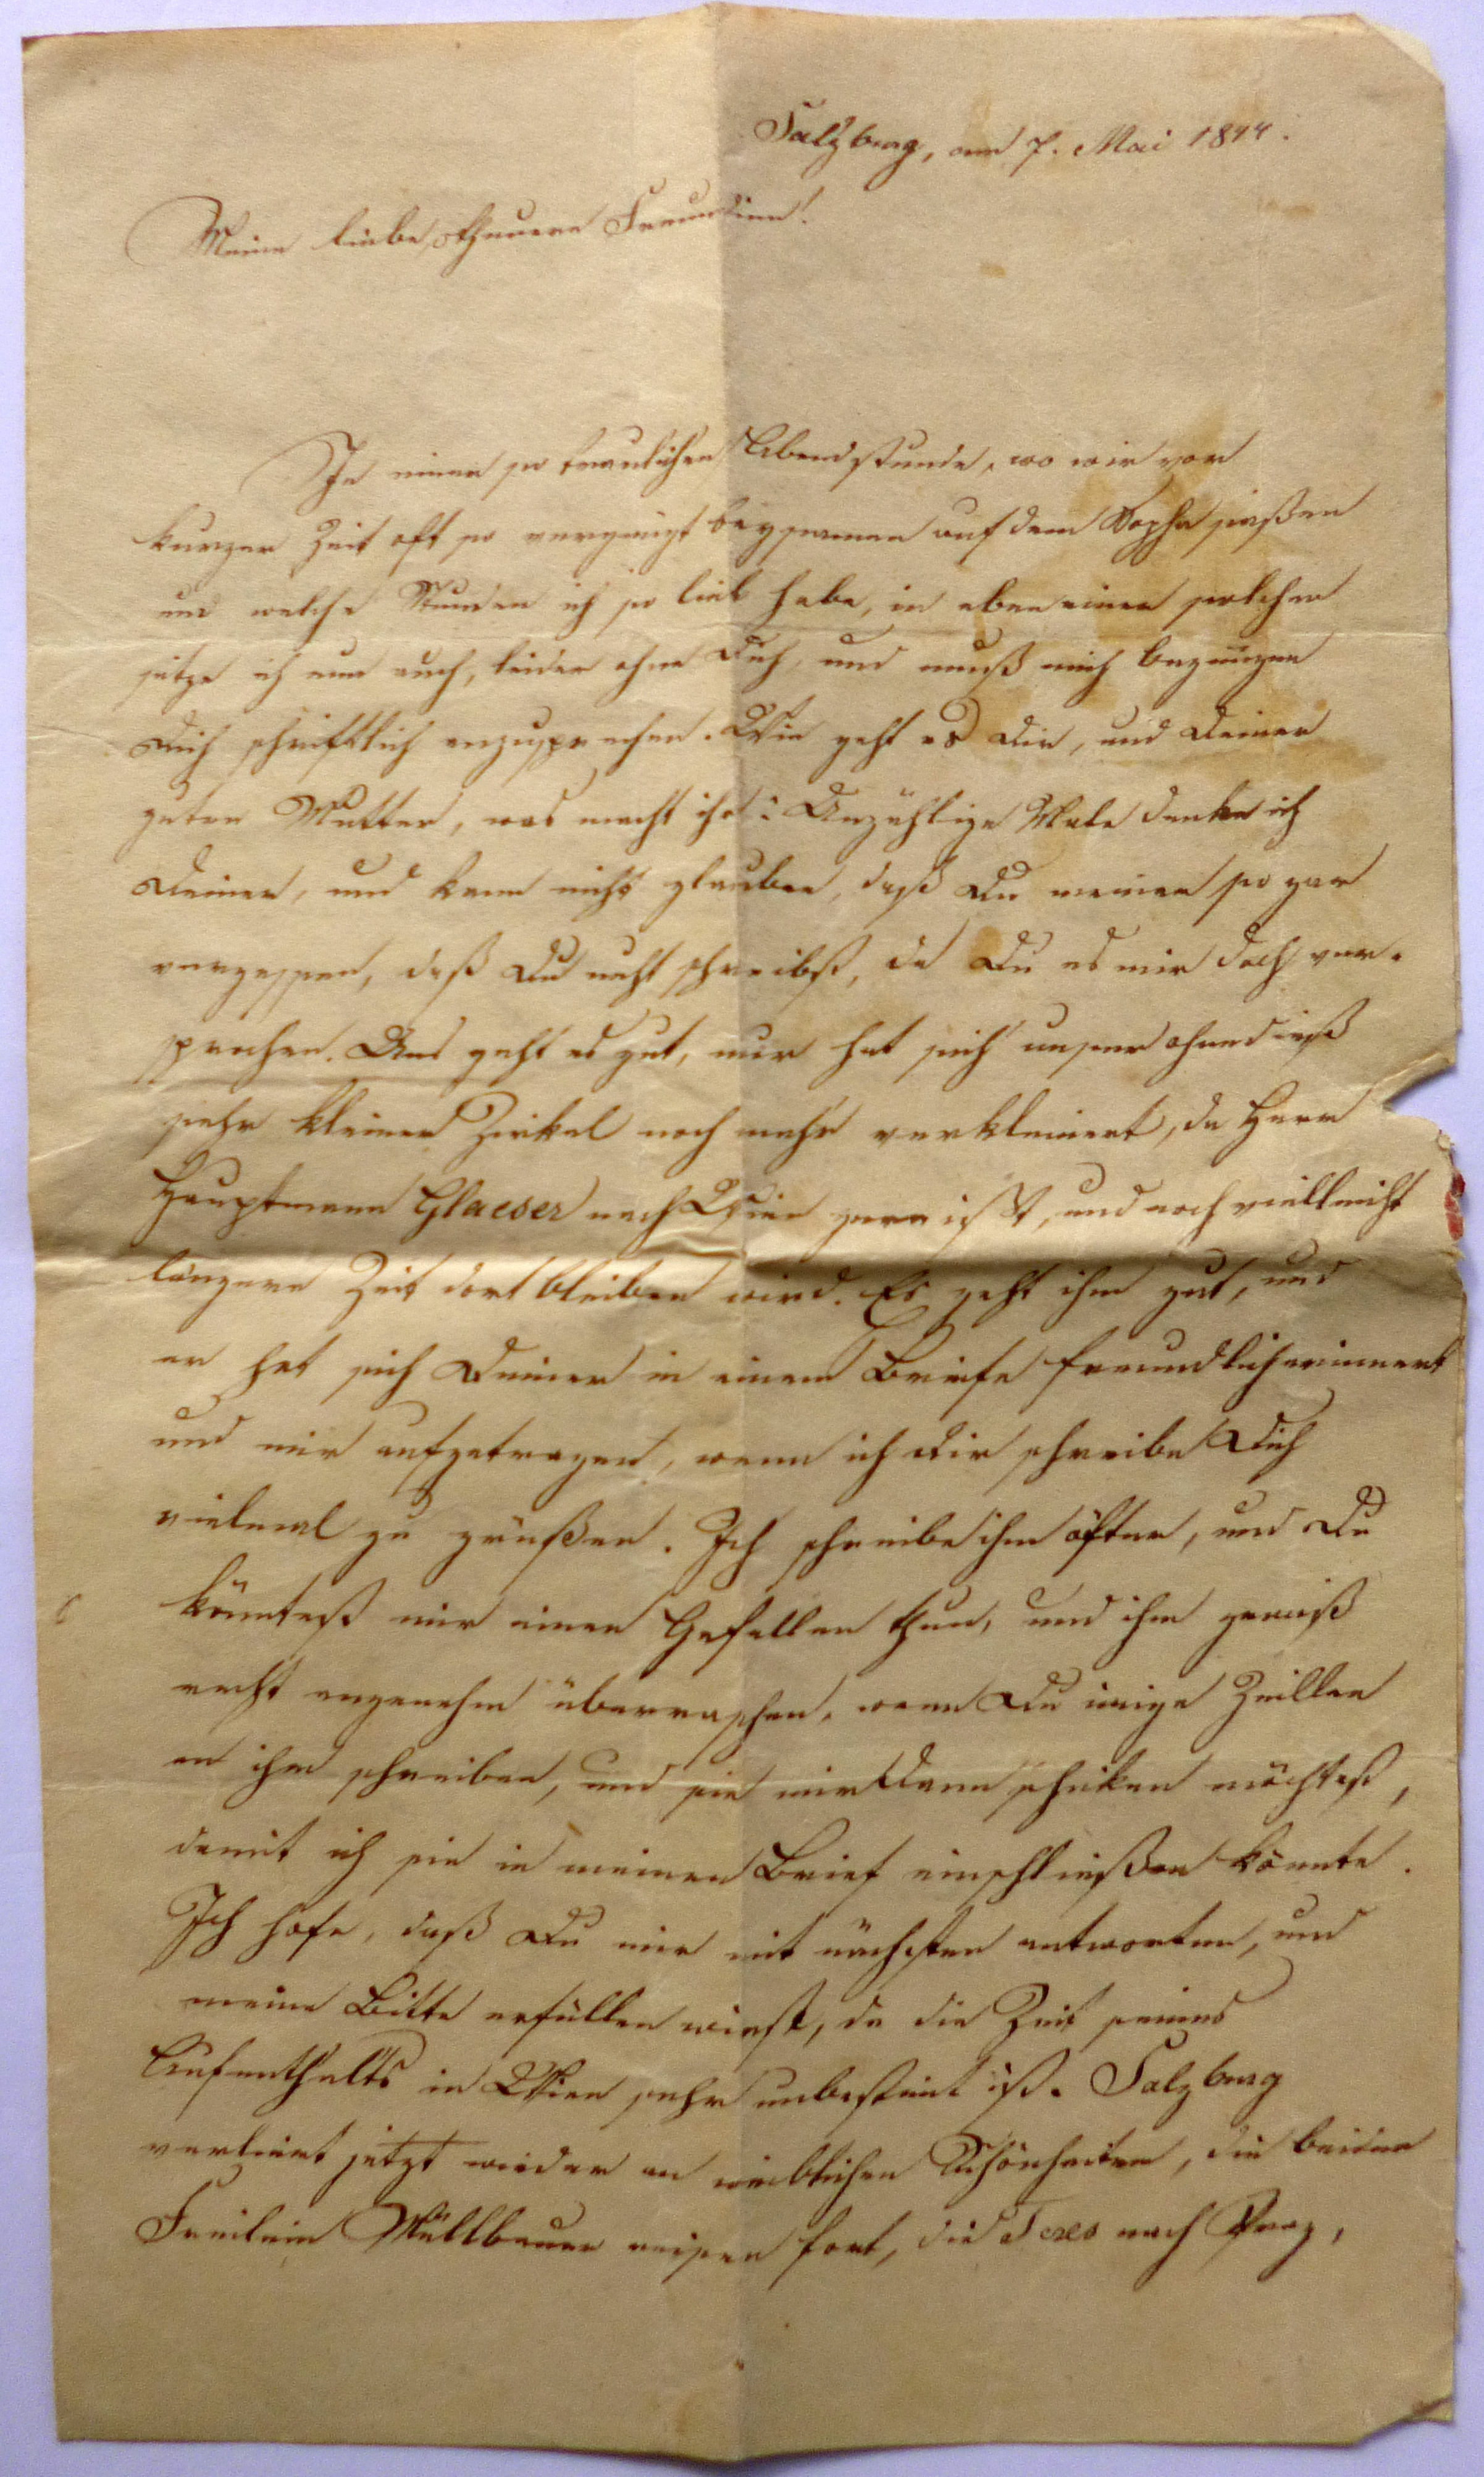 Salzburg, am 7. Mai 1844.
Meine liebe, theuere Freundinn!
In einer so traulichen Abendstunde, wo wir vor
kurzer Zeit oft so vergnügt beysamen auf dem Sopha saßen
und welche Stunden ich so lieb habe, in eben einer solchen
sitze ich nun auch, leider ohne Dich, und muß mich begnügen
Dich schriftlich anzusprechen. Wie geht es Dir, und Deiner
guten Mutter, was macht ihr? Unzählige Male denke ich
Deiner, und kann nicht glauben, daß Du meiner so gar
vergessen, daß Du nicht schreibst, da Du es mir doch ver-
sprochen. Uns geht es gut, nur hat sich unser ohnedieß
sehr kleiner Zirkel noch mehr verkleinert, da Herr
Hauptmann Glaeser nach Wien gereist, und noch vielleicht
längere Zeit dort bleiben wird. Es geht ihm gut, und
er hat sich Deiner in einem Briefe freundlich erinnert
und mir aufgetragen, wenn ich Dir schreibe Dich
vielmal zu grüßen. Ich schreibe ihm öfter, und Du
könntest mir einen Gefallen thun, und ihm gewiß
recht angenehm überraschen, wenn Du einige Zeillen
an ihm schreiben, und sie mir dann schiken möchtest,
damit ich sie in meinen Brief einschließen könnte.
Ich hofe, daß Du mir mit nächsten antworten, und
meine Bitte erfüllen wirst, da die Zeit seines
Aufenthalts in Wien sehr unbestimt ist. Salzburg
verliert jetzt wieder an weiblichen Schönheiten, die beiden
Freilein Müllbauer reisen fort, die nach Prag,